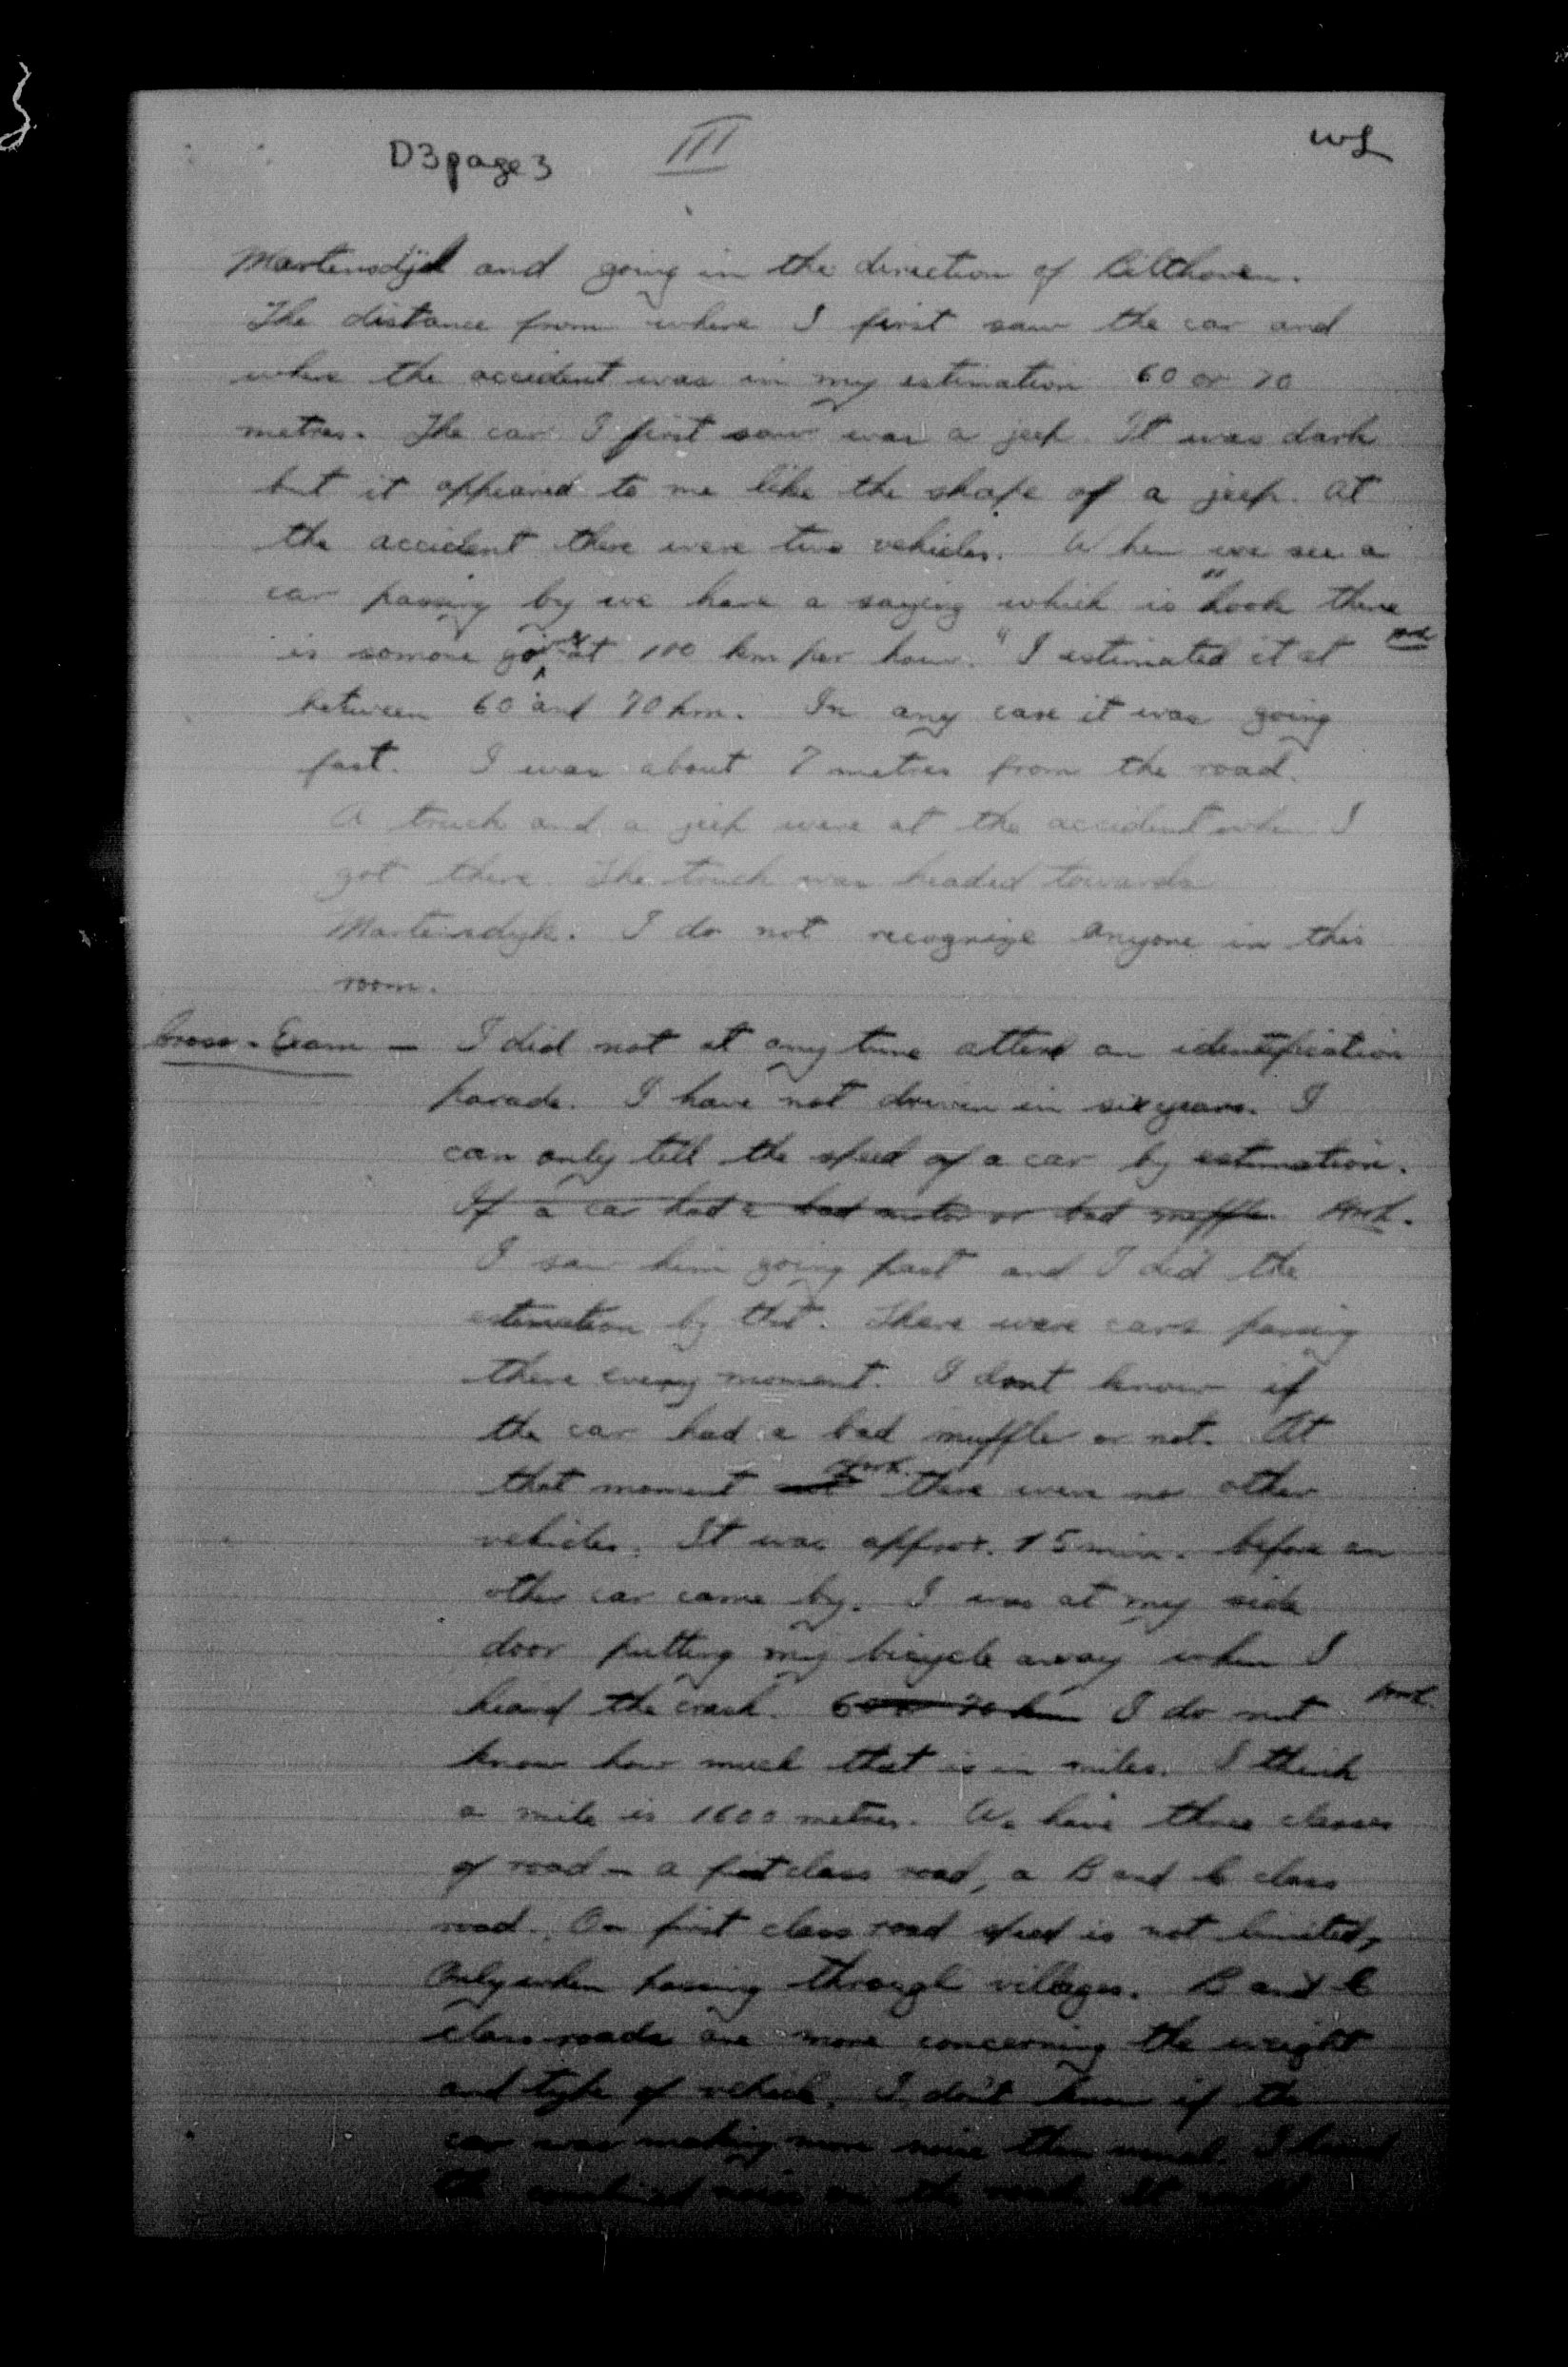 D3 page 3
III
WL
Martensdijk and going in the direction of Bilthoven.
The distance from where I first saw the car and
where the accident was in my estimation 60 or 70
metres. The car I first saw was a jeep. It was dark
but it appeared to me like the shape of a jeep. At
the accident there were two vehicles. When we see a
car passing by we have a saying which is "Look there
is somone going at 100 km per hour." I estimated it at
between 60 and 70 km. In any case it was going
fast. I was about 7 metres from the road.
A truck and a jeep were at the accident when I
got there. The truck was headed towards
Martensdyk. I do not recognize anyone in this
room.
Cross-Exam — I did not at any time attend an identification
parade. I have not driven in six years. I
can only tell the speed of a car by estimation.
If a car had a bad motor or bad muffler
I saw him going past and I did the
estimation by that. There were cars passing
there every moment. I dont know if
the car had a bad muffler or not. At
that moment there were no other
vehicles. It was approx. 15 min. before an
other car came by. I was at my side
door putting my bicycle away when I
heard the crash. 60 or 70 km I do not
know how much that is in miles. I think
a mile is 1600 metres. We have three classes
of road - a first class road, a B and C class
road. On first class road speed is not limited,
only when passing through villages. B and C
class roads are more concerning the weight
and type of vehicle. I don't know if the
car was making more noise than usual. I heard
the noise on the road. It